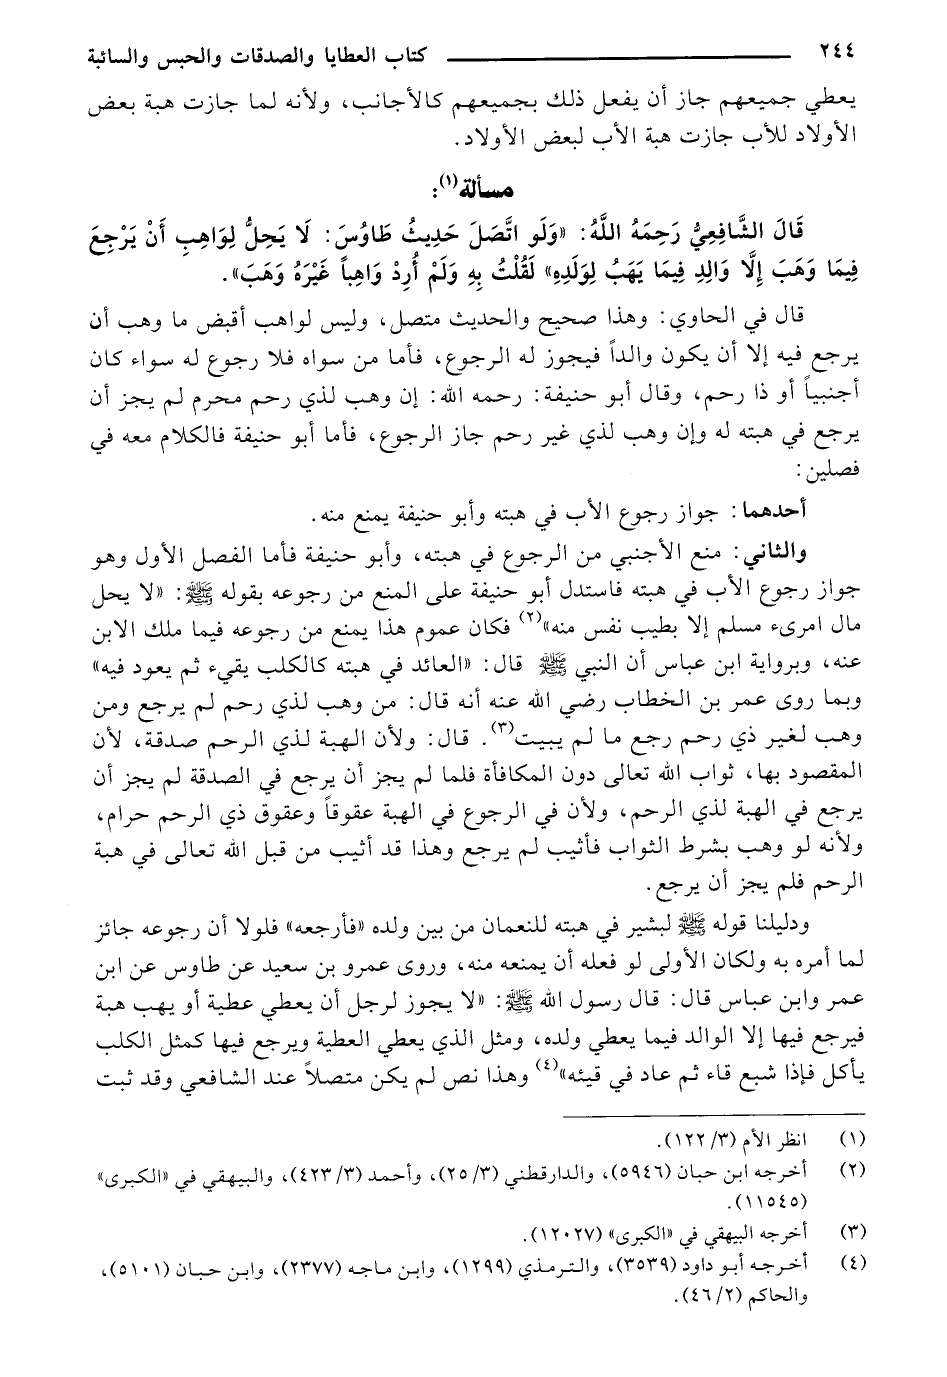 ٢٤٤ كتاب العطايا والصدقات والحبس والسائبة
يعطي جميعهم جاز أن يفعل ذلك بجميعهم كالأجانب، ولأنه لما جازت هبة بعض
الأولاد للأب جازت هبة الأب لبعض الأولاد.
مسألة(١):
قَالَ الشَّافِعِيُّ رَحِمَهُ اللَّهُ: «وَلَو اتَّصَلَ حَدِيثُ طَاوُسَ: لَا يَحِلُّ لِوَاهِبِ أَنْ يَرْجِعَ
فِيمَا وَهَبَ إِلَّا وَالِدِ فِيمَا يَهَبُ لِوَلَدِهِ» لَقُلْتُ بِهِ وَلَمْ أُرِدْ وَاهِباً غَيْرَهُ وَهَبَ».
قال في الحاوي: وهذا صحيح والحديث متصل، وليس لواهب أقبض ما وهب أن
يرجع فيه إلا أن يكون والداً فيجوز له الرجوع، فأما من سواه فلا رجوع له سواء كان
أجنبياً أو ذا رحم، وقال أبو حنيفة: رحمه الله: إن وهب لذي رحم محرم لم يجز أن
يرجع في هبته له وإن وهب لذي غير رحم جاز الرجوع، فأما أبو حنيفة فالكلام معه في
فصلين:
أحدهما: جواز رجوع الأب في هبته وأبو حنيفة يمنع منه.
والثاني: منع الأجنبي من الرجوع في هبته، وأبو حنيفة فأما الفصل الأول وهو
جواز رجوع الأب في هبته فاستدل أبو حنيفة على المنع من رجوعه بقوله ﷺ: «لا يحل
مال امرىء مسلم إلا بطيب نفس منه»(٢) فكان عموم هذا يمنع من رجوعه فيما ملك الابن
عنه، وبرواية ابن عباس أن النبي ﷺ قال: «العائد في هبته كالكلب يقيء ثم يعود فيه»
وبما روى عمر بن الخطاب رضي الله عنه أنه قال: من وهب لذي رحم لم يرجع ومن
وهب لغير ذي رحم رجع ما لم يبيت(٣). قال: ولأن الهبة لذي الرحم صدقة، لأن
المقصود بها، ثواب الله تعالى دون المكافأة فلما لم يجز أن يرجع في الصدقة لم يجز أن
يرجع في الهبة لذي الرحم، ولأن في الرجوع في الهبة عقوقاً وعقوق ذي الرحم حرام،
ولأنه لو وهب بشرط الثواب فأثيب لم يرجع وهذا قد أثيب من قبل الله تعالى في هبة
الرحم فلم يجز أن يرجع.
ودليلنا قوله ﷺ لبشير في هبته للنعمان من بين ولده «فأرجعه» فلولا أن رجوعه جائز
لما أمره به ولكان الأولى لو فعله أن يمنعه منه، وروى عمرو بن سعيد عن طاوس عن ابن
عمر وابن عباس قال: قال رسول الله ﷺ: «لا يجوز لرجل أن يعطي عطية أو يهب هبة
فيرجع فيها إلا الوالد فيما يعطي ولده، ومثل الذي يعطي العطية ويرجع فيها كمثل الكلب
يأكل فإذا شبع قاء ثم عاد في قيئه»(٤) وهذا نص لم يكن متصلاً عند الشافعي وقد ثبت
(١) انظر الأم (٣/ ١٢٢).
(٢) أخرجه ابن حبان (٥٩٤٦)، والدارقطني (٣/ ٢٥)، وأحمد (٣/ ٤٢٣)، والبيهقي في «الكبرى»
(١١٥٤٥).
(٣) أخرجه البيهقي في «الكبرى» (١٢٠٢٧).
(٤) أخرجه أبو داود (٣٥٣٩)، والترمذي (١٢٩٩)، وابن ماجه (٢٣٧٧)، وابن حبان (٥١٠١)،
والحاكم (٢/ ٤٦).